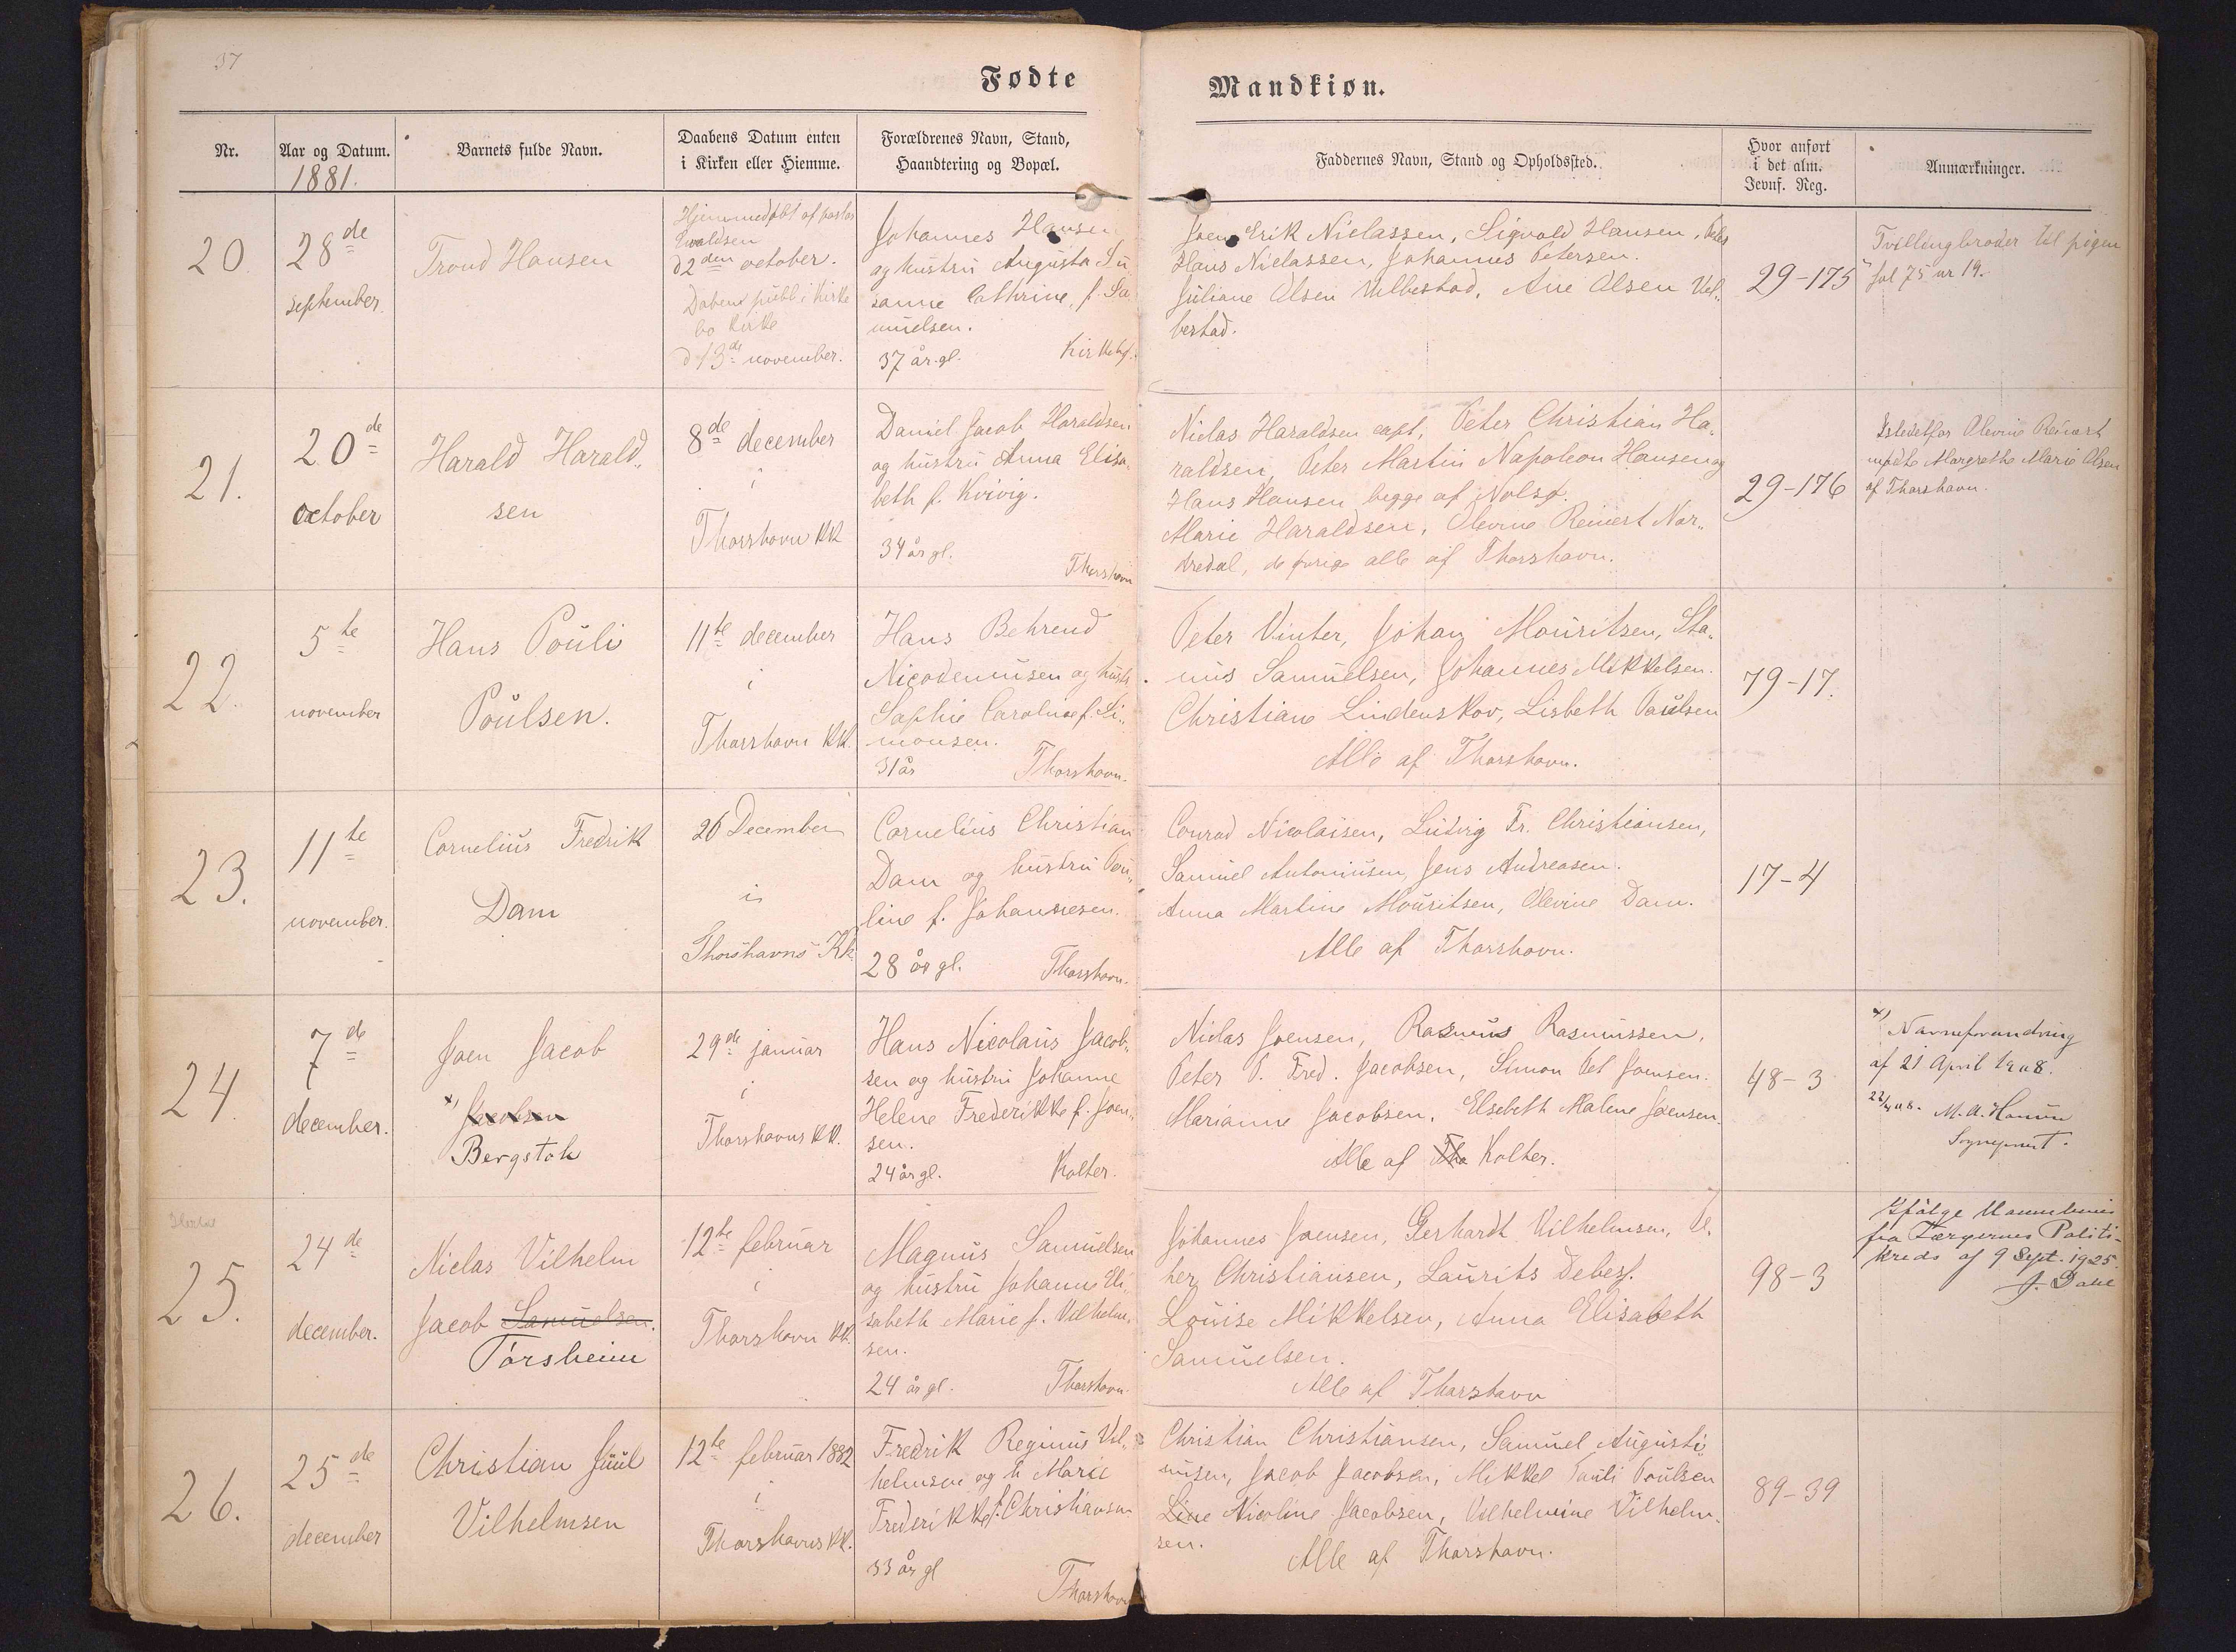 37
Fødte
Mandkiøn.
Nr.
Aar og Datum.
1881.
Barnets fulde Navn.
Daabens Datum enten
i Kirken eller Hiemme.
Forældrenes Navn, Stand,
Haandtering og Bopæl.
Faddernes Navn, Stand og Opholdssted.
Hvor anført
i det alm.
Jevnf. Reg.
Anmærkninger.
20
28de
september.
Trond Hansen
Hjemmedøbt af pastor
Evaldsen
d 2den october.
Dåbens publ. i Kirke
bo Kirke
d 13de november.
Johannes Hansen
og hustru Augusta Su
sanne Cathrine, f. Sa
muelsen.
37 år.gl. Kirkebø.
Joen Erik Niclassen, Sigvald Hansen,
Hans Niclassen, Johannes Petersen.
Juliane Olsen Velbestad, Ane Olsen Vel„
bestad.
29-175
Tvillingbroder til pigen
fol 75 nr 19.
21.
20de
october
Harald Harald„
sen
8de december
i
Thorshavn KK
Daniel Jacob Haraldsen
og hustru Anna Elisa„
beth f. Kvivig.
34 år gl.
Thorshavn
Niclas Haraldsen capt, Peter Christian Ha„
raldsen, Peter Martin Napoleon Hansen og
Hans Hansen begge af Nolsø.
Marie Haraldsen, Olevine Reinert Nor„
dredal, de øvrige alle af Thorshavn.
29-176
Istedetfor Olevine Reinert
mødte Margrethe Marie Olsen
af Thorshavn.
22.
5te
november
Hans Pouli
Poulsen.
11te december
i
Thorshavn KK.
Hans Behrend
Nicodemusen og hustr.
Sophie Caroline f. Si„
monsen.
31 år Thorshavn.
Peter Vinter, Johan Mouritsen, Sta„
nus Samuelsen, Johannes Mikkelsen.
Christiane Lindenskov, Lisbeth Paulsen
Alle af Thorshavn.
79-17.
23.
11te
november.
Cornelius Fredrik
Dam
26 December
i
Thorshavns Kk.
Cornelius Christian
Dam og hustru Pau„
line f. Johannesen.
28 år gl. Thorshavn.
Conrad Nicolaisen, Ludvig Fr. Christiansen,
Samuel Antoniusen, Jens Andreasen.
Anna Martine Mouritsen, Olevine Dam.
Alle af Thorshavn.
17-4
24.
7de
december.
Joen Jacob
x) Jacobsen
Bergstok
29de januar
i
Thorshavns KK.
Hans Nicolaus Jacob„
sen og hustru Johanne
Helene Frederikke f. Joen„
sen.
24 år gl. Kolter.
Niclas Joensen, Rasmus Rasmussen.
Peter P. Fred. Jacobsen, Simon Pet Joensen.
Marianne Jacobsen, Elsebeth Malene Joensen.
Alle af Tho Kolter.
48-3
x) Navneforandring
af 21 April 1908.
22/4 08. M. A. Hansen
Sognepræst.
25.
24de
december.
Niclas Vilhelm
Jacob Samuelsen.
Tórsheim
12te februar
i
Thorshavn KK.
Magnus Samuelsen
og hustru Johanne Eli„
sabeth Marie f. Vilhelm„
sen.
24 år gl. Thorshavn.
Johannes Joensen, Gerhardt Vilhelmsen, Pe„
her Christiansen, Laurits Debess.
Louise Mikkelsen, Anna Elisabeth
Samuelsen.
Alle af Thorshavn
98-3
Ifølge Navnebevis
fra Færøernes Politi-
kreds af 9 Sept. 1925.
J. Dahl
26.
25de
december
Christian Juul
Vilhelmsen
12te februar 1882
i
Thorshavns KK.
Fredrik Reginus Vil„
helmsen og h. Marie
Frederikke f. Christiansen
33 år gl
Thorshavn
Christian Christiansen, Samuel Augusti
nusen, Jacob Jacobsen, Mikkel Pauli Poulsen
Line Nicoline Jacobsen, Vilhelmine Vilhelm„
sen.
Alle af Thorshavn.
89-39